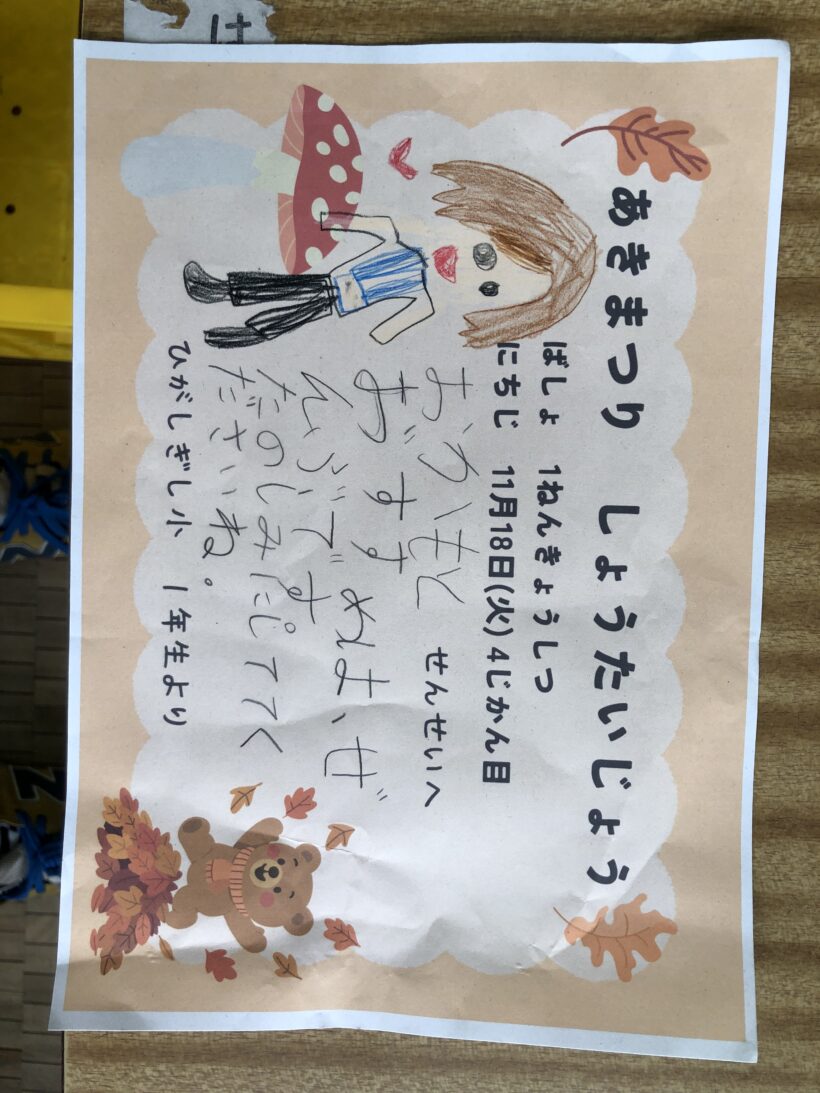 あきまつり しょうたいじょう
ばしょ 1ねんきょうしつ
にちじ 11月18日(火) 4じかん目
おかもと せんせいへ
おすすめは、ぜ
んぶです
たのしみにしててく
ださいね。
ひがしぎし小 1年生より